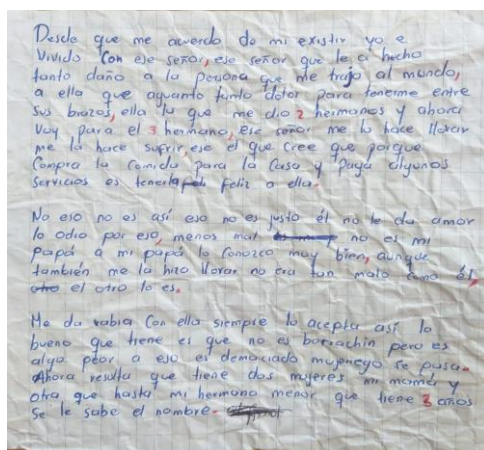 Desde que me acuerdo de mi existir yo e
Vivido Con ese señor, ese señor que le a hecho
tanto daño a la persona que me trajo al mundo,
a ella que aguanto tanto dolor para tenerme entre
sus brazos, ella la que me dio 2 hermanos y ahora
Voy para el 3 hermano, ese señor me la hace llorar
me la hace sufrir, ese el que cree que porque
Compra la Comida para la Casa y paga algunos
Servicios es tenerla feliz a ella.
No eso no es así eso no es justo él no le da amor
lo odio por eso, menos mal no es mi
Papá a mi papá lo Conozco muy bien, aunque
también me la hizo llorar no era tan malo como él,
el otro lo es.
Me da rabia Con ella siempre lo acepta así lo
bueno que tiene es que no es borrachin pero es
algo peor a eso es demaciado mujeriego se pasa.
Ahora resulta que tiene dos mujeres mi mamá y
otra que hasta mi hermano menor que tiene 3 años
Se le sabe el nombre.